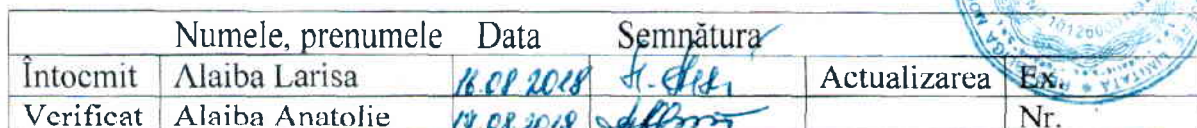 Numele, prenumele Data Semnătura
Întocmit Alaiba Larisa 16.08 2018 Actualizarea Ex.
Verificat Alaiba Anatolie Nr.